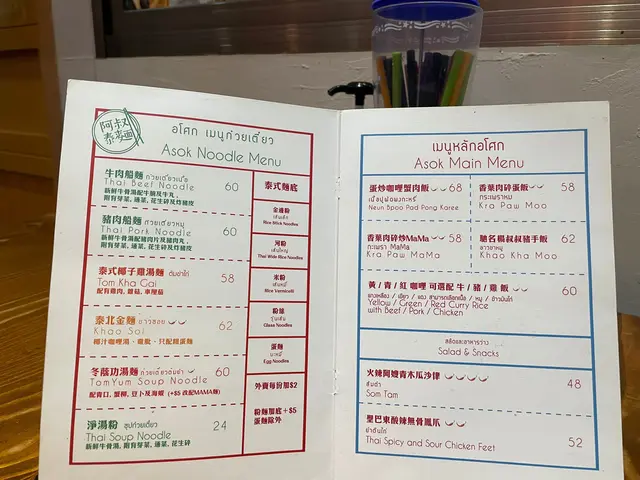 阿叔
泰麵
อโศก เมนูก๋วยเตี๋ยว
Asok Noodle Menu
牛肉船麵 ก๋วยเตี๋ยวเนื้อ
Thai Beef Noodle 60
新鮮牛骨湯配牛腩及牛丸,
附有芽菜, 通菜, 花生碎及炸豬皮
豬肉船麵 ก๋วยเตี๋ยวหมู
Thai Pork Noodle 60
新鮮牛骨湯配豬肉片及豬肉丸,
附有芽菜, 通菜, 花生碎及炸豬皮
泰式椰子雞湯麵 ต้มข่าไก่
Tom Kha Gai 58
配有雞肉, 雞菇, 車厘茄
泰北金麵 ข้าวซอย
Khao Soi 62
椰汁咖喱湯、雞髀、只配雞蛋麵
冬蔭功湯麵 ก๋วยเตี๋ยวต้มยำ
TomYum Soup Noodle 60
配青口, 蟹柳, 豆卜及海蝦 (+$5 改配MAMA麵)
淨湯粉 ซุปก๋วยเตี๋ยว
Thai Soup Noodle 24
新鮮牛骨湯, 附有芽菜, 通菜, 花生碎
泰式麵底
金邊粉
เส้นเล็ก
Rice Stick Noodles
河粉
เส้นใหญ่
Thai Wide Rice Noodles
米粉
เส้นหมี่
Rice Vermicelli
粉絲
วุ้นเส้น
Glass Noodles
蛋麵
บะหมี่
Egg Noodles
外賣每份加$2
粉麵加底 +$5
蛋麵除外
เมนูหลักอโศก
Asok Main Menu
蛋炒咖喱蟹肉飯 68
เนื้อปูผัดผงกะหรี่
Neun Bpoo Pad Pong Karee
香葉肉碎蛋飯 58
กระเพราหมู
Kra Paw Moo
香葉肉碎炒MaMa 58
กะเพรา MaMa
Kra Paw MaMa
馳名楓叔叔豬手飯 62
ข้าวขาหมู
Khao Kha Moo
黃 / 青 / 紅 咖喱 可選配 牛 / 豬 / 雞 飯 60
แกงเหลือง / เขียว / แดง สามารถเลือกเนื้อ / หมู / ข้าวมันไก่
Yellow / Green / Red Curry Rice
with Beef / Pork / Chicken
สลัดและอาหารว่าง
Salad & Snacks
火辣阿嬤青木瓜沙律 48
ส้มตำ
Som Tam
聖巴東酸辣無骨鳳爪 52
ยำตีนไก่
Thai Spicy and Sour Chicken Feet